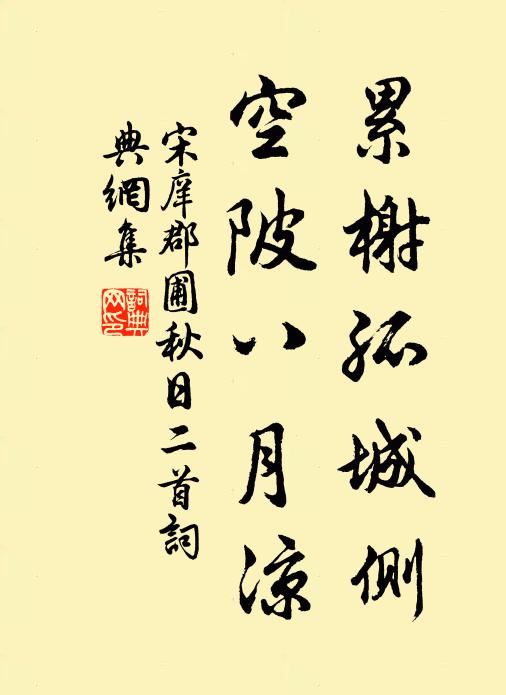 累榭孤城側
空陂八月涼
宋庠郡圃秋日二首詞
典網集
詞典網印